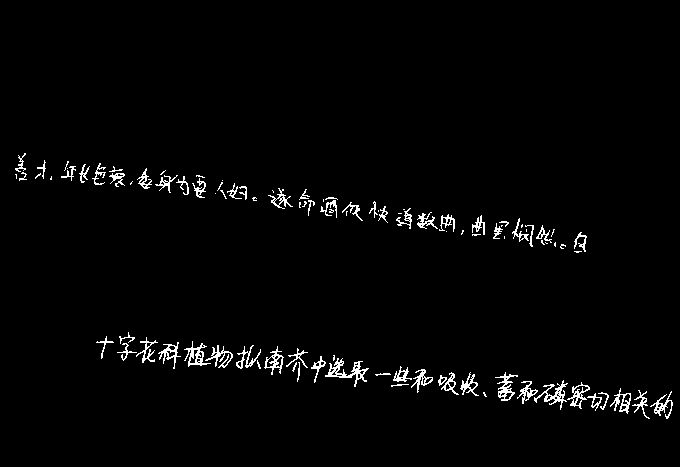 善才，年长色衰，委身为贾人妇。遂命酒使快弹数曲，曲罢悯然。自
十字花科植物拟南芥中选取一些和吸收、蓄积磷密切相关的